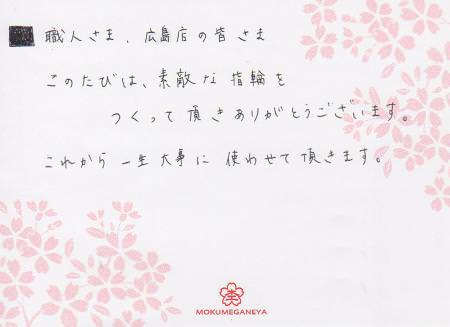 職人さま、広島店の皆さま
このたびは、素敵な指輪を
つくって頂きありがとうございます。
これから一生大事に使わせて頂きます。
MOKUMEGANEYA